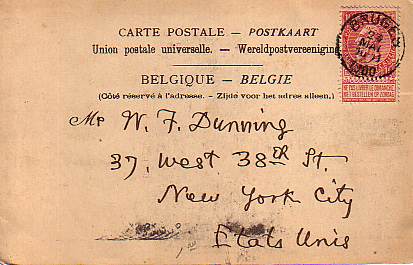 CARTE POSTALE – POSTKAART
Union postale universelle. – Wereldpostvereeniging
BELGIQUE – BELGIE
(Côté réservé à l'adresse. – Zijde voor het adres alleen.)
BRUGES
1900
NE PAS LIVRER LE DIMANCHE
NIET BESTELLEN OP ZONDAG
Mr W. F. Dunning
37, West 38th St.
New York City
Etats Unis